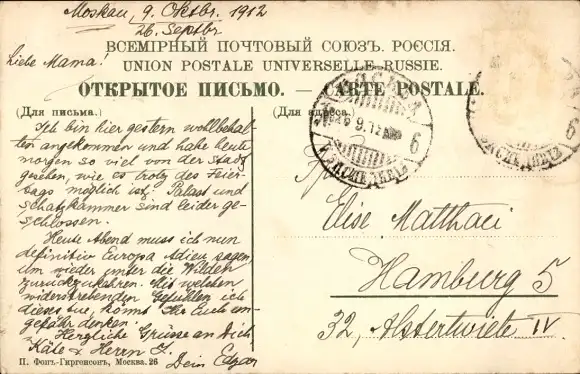 Moskau, 9. Oktbr. 1912
26. Septbr.
Liebe Mama!
ВСЕМІРНЫЙ ПОЧТОВЫЙ СОЮЗЪ. РОССІЯ.
UNION POSTALE UNIVERSELLE. RUSSIE.
ОТКРЫТОЕ ПИСЬМО. — CARTE POSTALE.
(Для письма.)
(Для адреса.)
Ich bin hier gestern wohlbehal-
ten angekommen und habe heute
morgen so viel von der Stadt
gesehen, wie es trotz des Feier-
tags möglich ist. Palast und
Schatzkammer sind leider ge-
schlossen.
Heute Abend muss ich nun
definitiv Europa Adieu sagen
um wieder unter die Wilden
zurückzukehren. Mit welchen
widerstrebenden Gefühlen ich
dieses tue, könnt Ihr Euch un-
gefähr denken.
Herzliche Grüsse an Dich
Käte & Herrn F.
Dein Edgar
П. Фонъ-Гиргенсонъ, Москва. 26
МОСКВА
26 9.12
6
ЭКСПЕДИЦІЯ
6
ЭКСПЕДИЦІЯ
Elise Matthaei
Hamburg 5
32, Alstertwiete IV